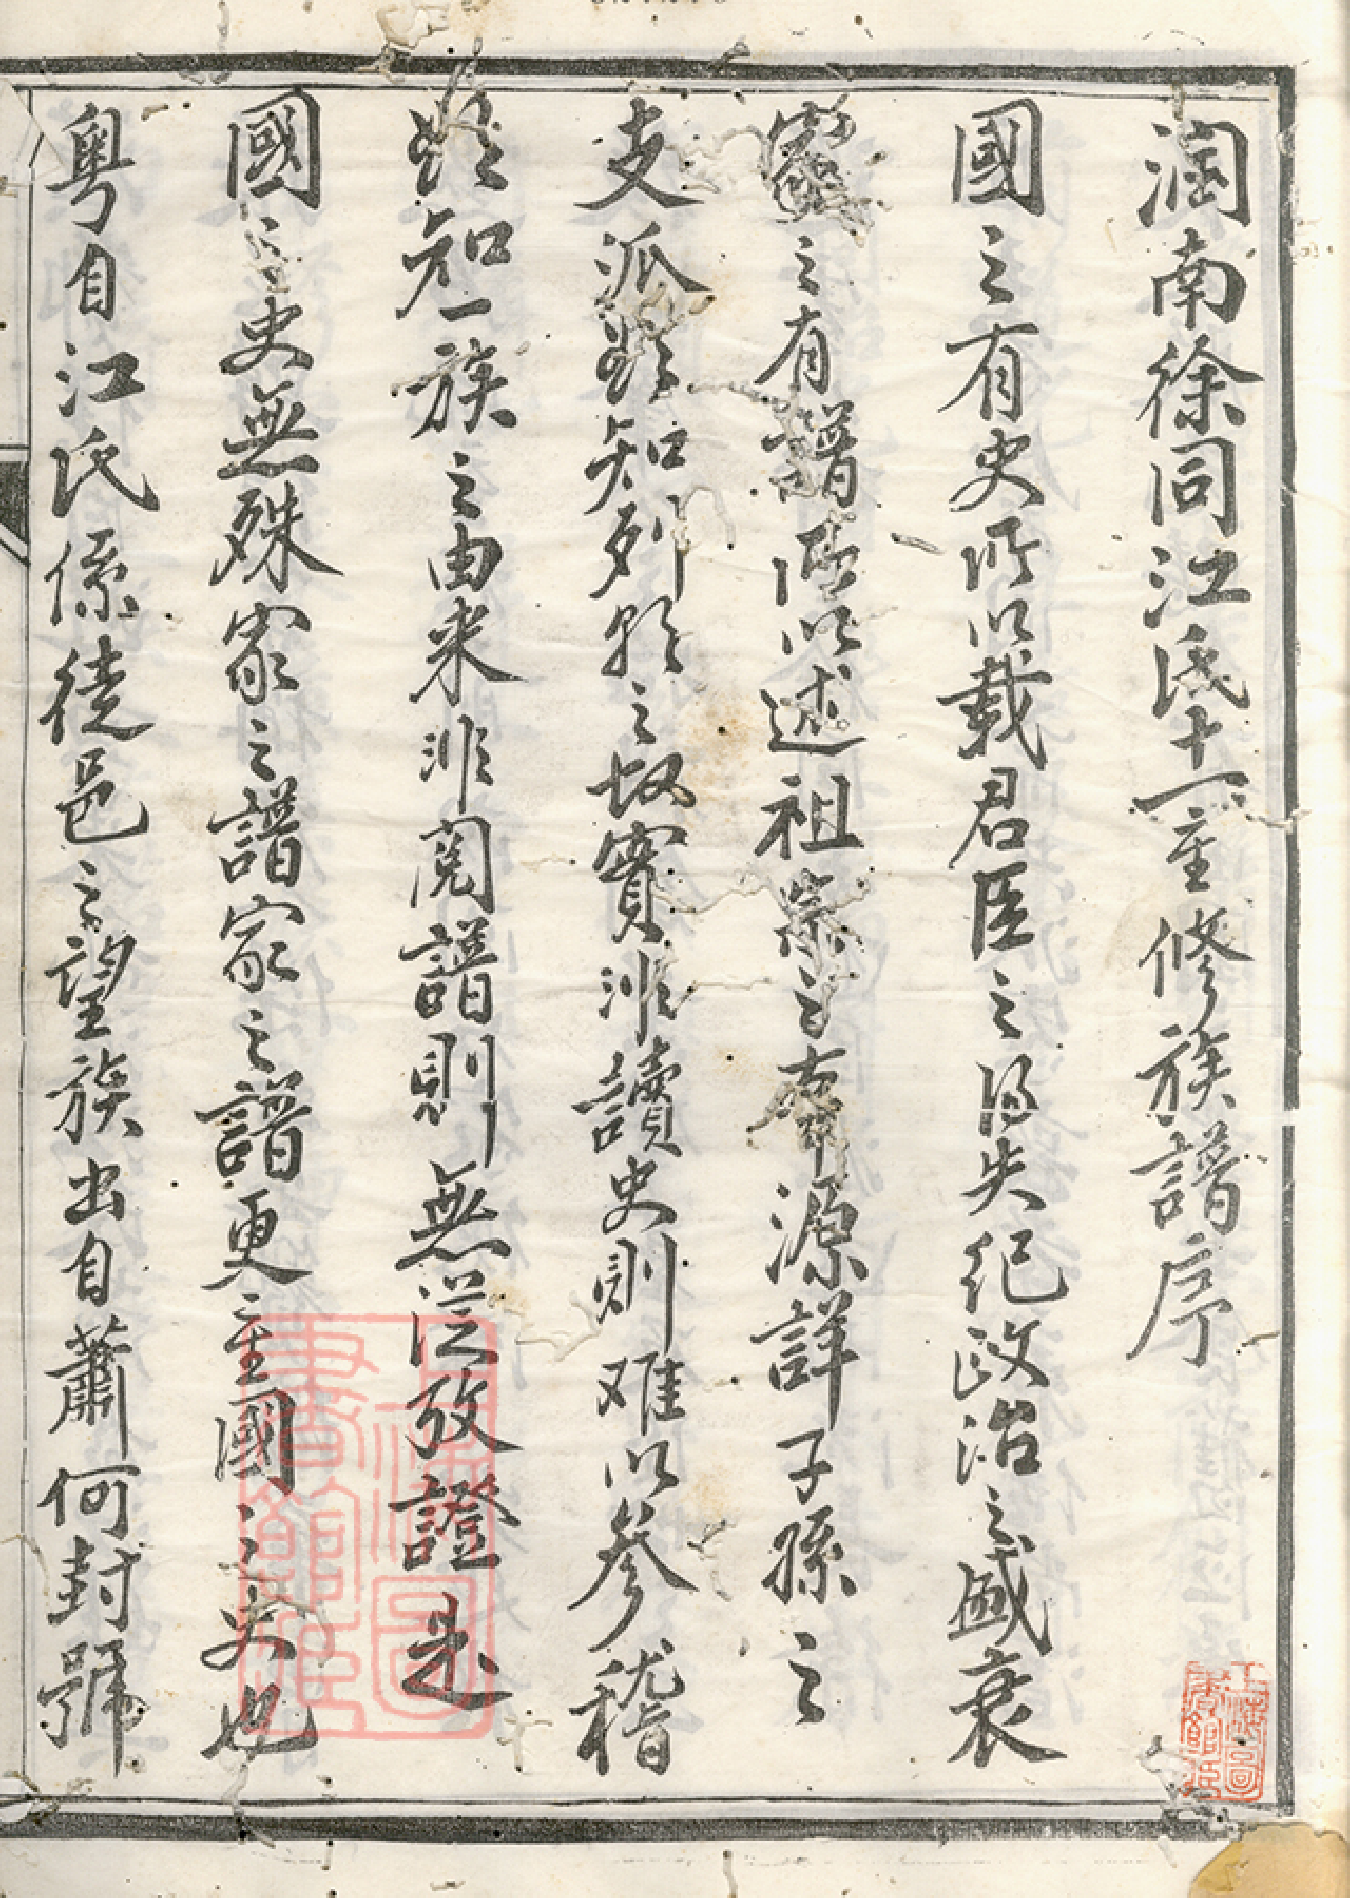 润南徐同江氏十一重修族譜序
國之有史所以載君臣之得失纪政治之盛衰
家之有譜所以述祖宗之有源詳子孫之
支派欲知列朝之故實非讀史則难以參稽
欲知一族之由来非閱譜則無從攷證是
國之史無殊家之譜家之譜更重國之史也
粵自江氏係徒邑之望族出自蕭何封號
上海圖書館藏
上海圖書館藏